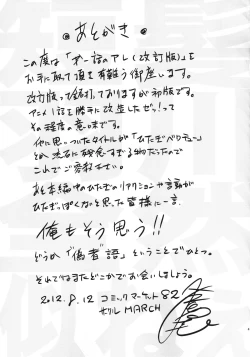 あとがき
この度は「オ○話のアレ(改訂版)」を
お手に取って頂き有難う御座います。
改訂版って銘打っておりますが初版です。
アニメ1話を勝手に改生したぜっ!って
その程度の意味です。
他に思いついたタイトルが
これでご容赦下さい。
あと本編中のひたぎのリアクションや言動が
ひたぎっぽくないと思った皆様に一言。
俺もそう思う!!
どうか「偽者語」ということでひとつ。
それではまたどこかでお会いしましょう。
2012.8.12 コミックマーケット82
MARCH